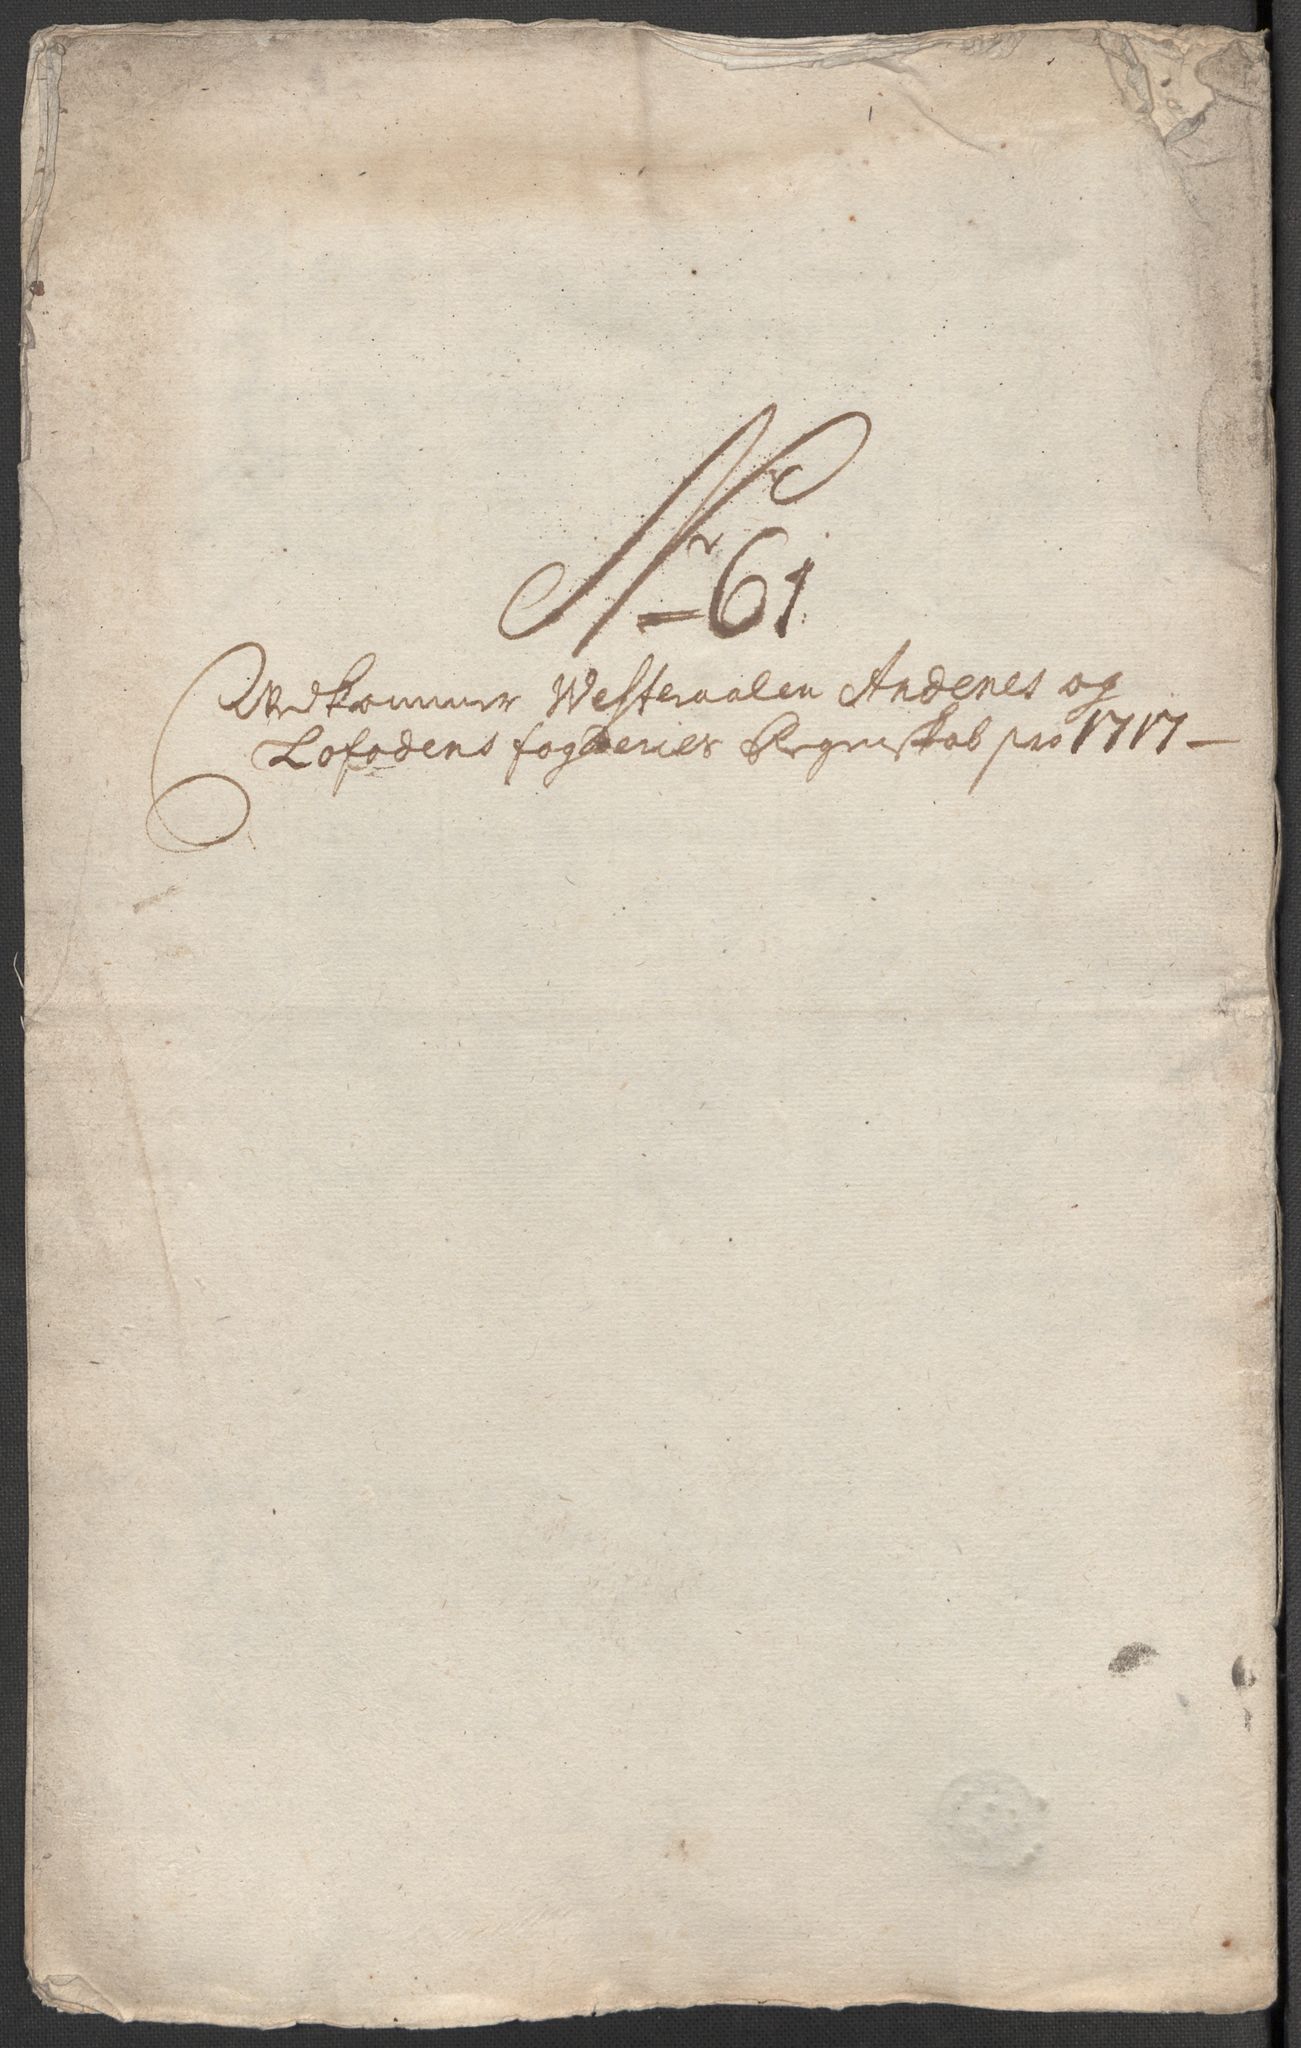 Nr 61
Vedkommer Westeraalen Andenes og
Lofodens fogderies Regnskab pro 1717